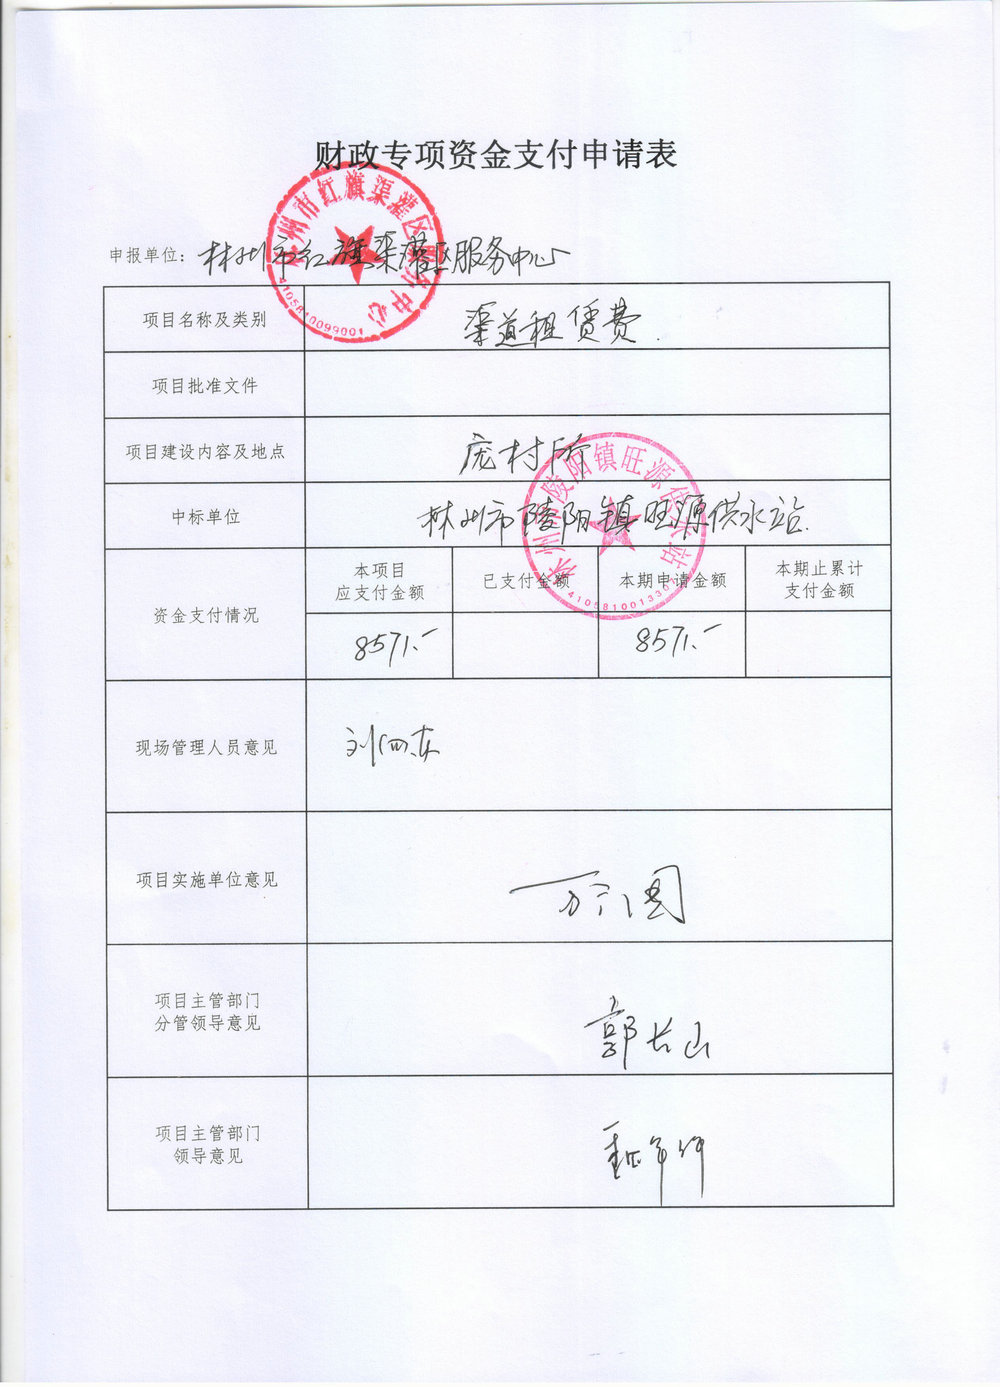 财政专项资金支付申请表
林州市红旗渠灌区服务中心
4105810099001
申报单位：林州市红旗渠灌区服务中心
项目名称及类别 渠道租赁费.
项目批准文件
项目建设内容及地点 庞村所
林州市陵阳镇旺源供水站
中标单位 林州市陵阳镇旺源供水站.
资金支付情况
本项目
应支付金额
已支付金额
本期申请金额
本期止累计
支付金额
8571.-
8571.-
现场管理人员意见
项目实施单位意见
项目主管部门
分管领导意见
郭长山
项目主管部门
领导意见